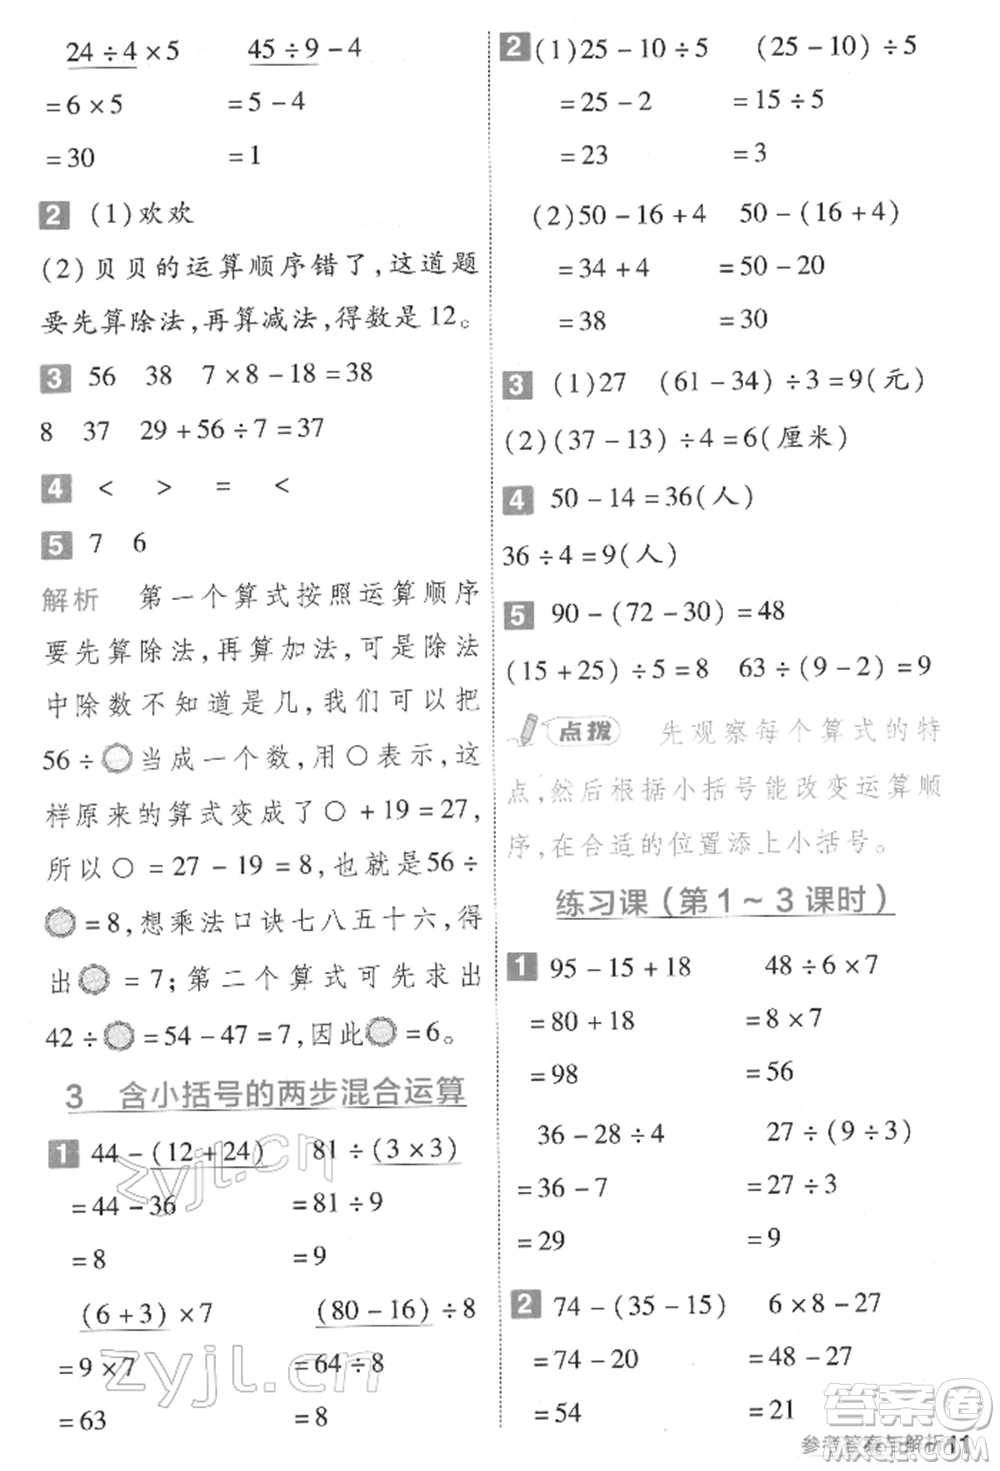 24÷4×5 45÷9-4
=6×5 =5-4
=30 =1
2 (1)欢欢
(2)贝贝的运算顺序错了,这道题
要先算除法,再算减法,得数是12。
3 56 38 7×8-18=38
8 37 29+56÷7=37
4 < > = <
5 7 6
解析 第一个算式按照运算顺序
要先算除法,再算加法,可是除法
中除数不知道是几,我们可以把
56÷○当成一个数,用○表示,这
样原来的算式变成了○+19=27,
所以○=27-19=8,也就是56÷
○=8,想乘法口诀七八五十六,得
出○=7;第二个算式可先求出
42÷○=54-47=7,因此○=6。
3 含小括号的两步混合运算
1 44-(12+24) 81÷(3×3)
=44-36 =81÷9
=8 =9
(6+3)×7 (80-16)÷8
=9×7 =64÷8
=63 =8
2 (1)25-10÷5 (25-10)÷5
=25-2 =15÷5
=23 =3
(2)50-16+4 50-(16+4)
=34+4 =50-20
=38 =30
3 (1)27 (61-34)÷3=9(元)
(2)(37-13)÷4=6(厘米)
4 50-14=36(人)
36÷4=9(人)
5 90-(72-30)=48
(15+25)÷5=8 63÷(9-2)=9
点拨 先观察每个算式的特
点,然后根据小括号能改变运算顺
序,在合适的位置添上小括号。
练习课(第1~3课时)
1 95-15+18 48÷6×7
=80+18 =8×7
=98 =56
36-28÷4 27÷(9÷3)
=36-7 =27÷3
=29 =9
2 74-(35-15) 6×8-27
=74-20 =48-27
=54 =21
参考答案与解析 11
zyjl.cn
zyjl.cn
答案圈
MXQE.COM